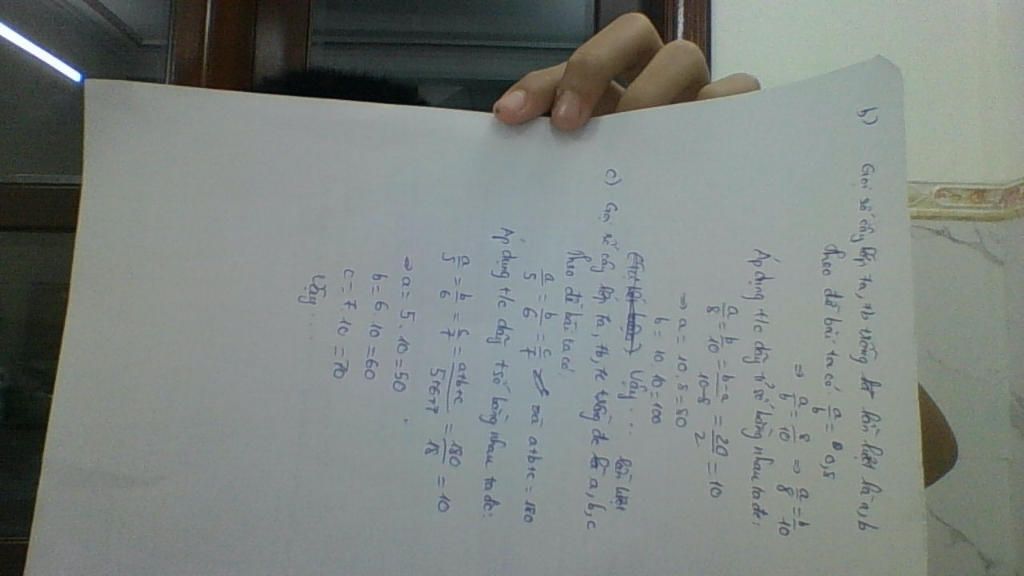 b) Gọi số cây lớp 7a, 7b trồng đc lần lượt là a, b
theo đề bài ta có: a/b = 0,8
⇒ a/b = 8/10 ⇒ a/8 = b/10
Áp dụng t/c dãy tỉ số bằng nhau ta đc:
a/8 = b/10 = b-a/10-8 = 20/2 = 10
⇒ a = 10 . 8 = 80
b = 10 . 10 = 100
Vậy ...
c) Gọi số cây lớp 7a, 7b, 7c trồng đc lần lượt là a, b, c
Theo đề bài ta có:
a/5 = b/6 = c/7 và a+b+c = 180
Áp dụng t/c dãy tsố bằng nhau ta đc:
a/5 = b/6 = c/7 = a+b+c/5+6+7 = 180/18 = 10
⇒ a = 5 . 10 = 50
b = 6 . 10 = 60
c = 7 . 10 = 70
Vậy ...